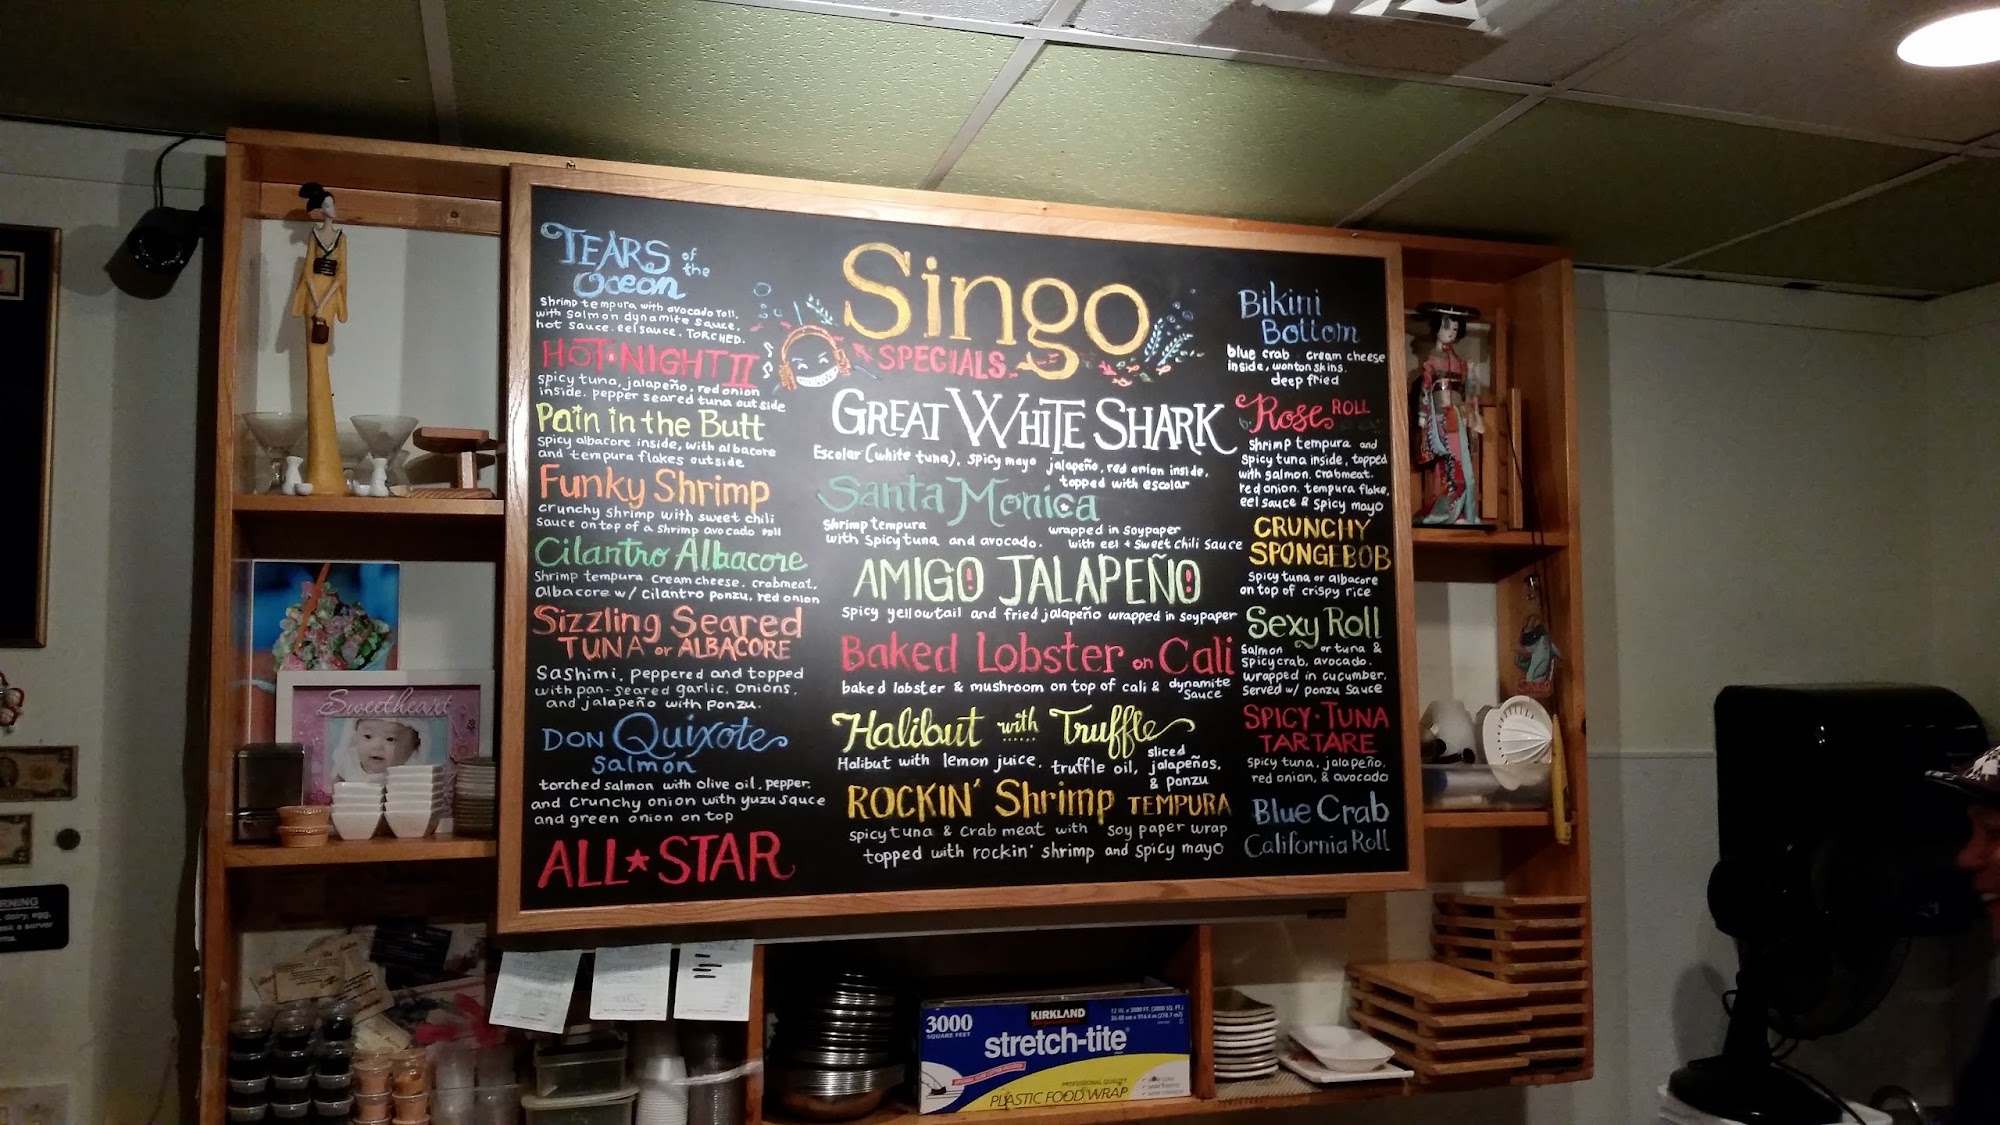 TEARS of the
Ocean
Shrimp tempura with avocado roll.
with salmon dynamite sauce,
hot sauce. eel sauce. TORCHED.
HOT NIGHT II
spicy tuna, jalapeño, red onion
inside. pepper seared tuna outside
Pain in the Butt
spicy albacore inside, with albacore
and tempura flakes outside
Funky Shrimp
crunchy shrimp with sweet chili
sauce on top of a shrimp avocado roll
Cilantro Albacore
Shrimp tempura cream cheese. crabmeat.
albacore w/ cilantro ponzu, red onion
Sizzling Seared
TUNA or ALBACORE
Sashimi, peppered and topped
with pan-seared garlic, onions,
and jalapeño with ponzu.
DON Quixote
salmon
torched salmon with olive oil, pepper.
and crunchy onion with yuzu sauce
and green onion on top
ALL★STAR
Singo
SPECIALS
GREAT WHITE SHARK
Escolar (white tuna), spicy mayo jalapeño, red onion inside,
topped with escolar
Santa Monica
Shrimp tempura wrapped in soypaper
with spicy tuna and avocado. with eel + sweet chili sauce
AMIGO JALAPEÑO
spicy yellowtail and fried jalapeño wrapped in soypaper
Baked Lobster on Cali
baked lobster & mushroom on top of cali & dynamite
sauce
Halibut with Truffle
Halibut with lemon juice. truffle oil, sliced
jalapeños.
& ponzu
ROCKIN' Shrimp TEMPURA
spicy tuna & crab meat with soy paper wrap
topped with rockin' shrimp and spicy mayo
Bikini
Bottom
blue crab cream cheese
inside, wonton skins.
deep fried
Rose ROLL
Shrimp tempura and
spicy tuna inside, topped
with salmon. crabmeat.
red onion. tempura flake,
eel sauce & spicy mayo
CRUNCHY
SPONGEBOB
spicy tuna or albacore
on top of crispy rice
Sexy Roll
Salmon or tuna &
spicy crab, avocado.
wrapped in cucumber.
Served w/ ponzu sauce
SPICY·TUNA
TARTARE
spicy tuna, jalapeño.
red onion, & avocado
Blue Crab
California Roll
Sweetheart
RNING
dairy, egg,
ask a server
3000
SQUARE FEET
KIRKLAND
stretch-tite
PROFESSIONAL QUALITY
PLASTIC FOOD WRAP